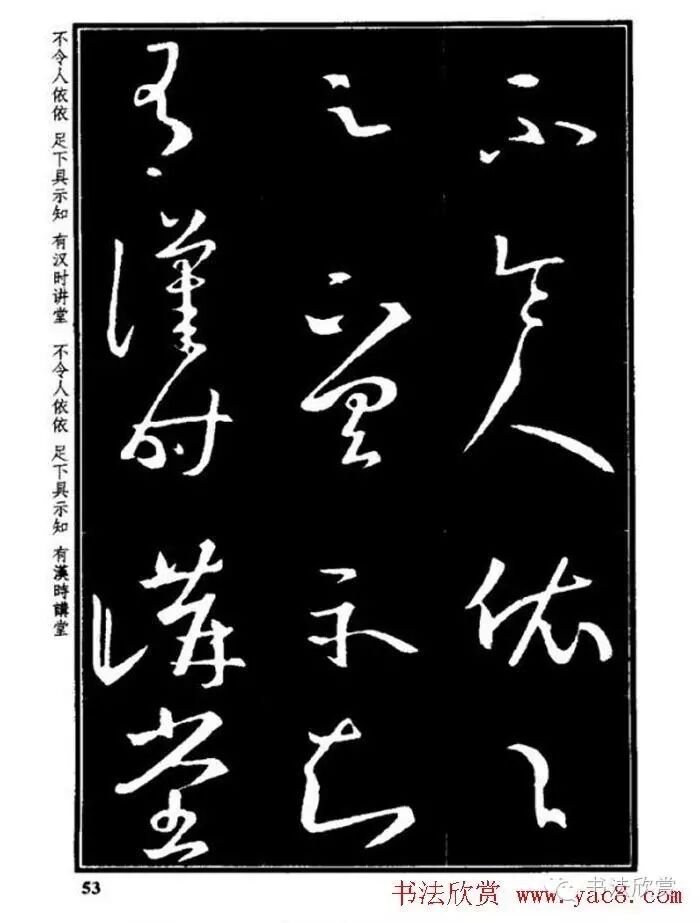 不令人依〻
足下具示知
有漢時講堂
不令人依依 足下具示知 有汉时讲堂 不令人依依 足下具示知 有漢時講堂
53
书法欣赏 www.yac8.com
书法欣赏